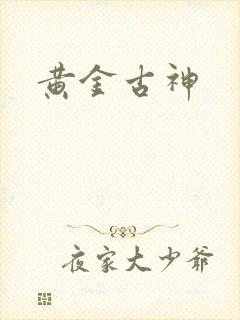 黄金古神
夜家大少爷